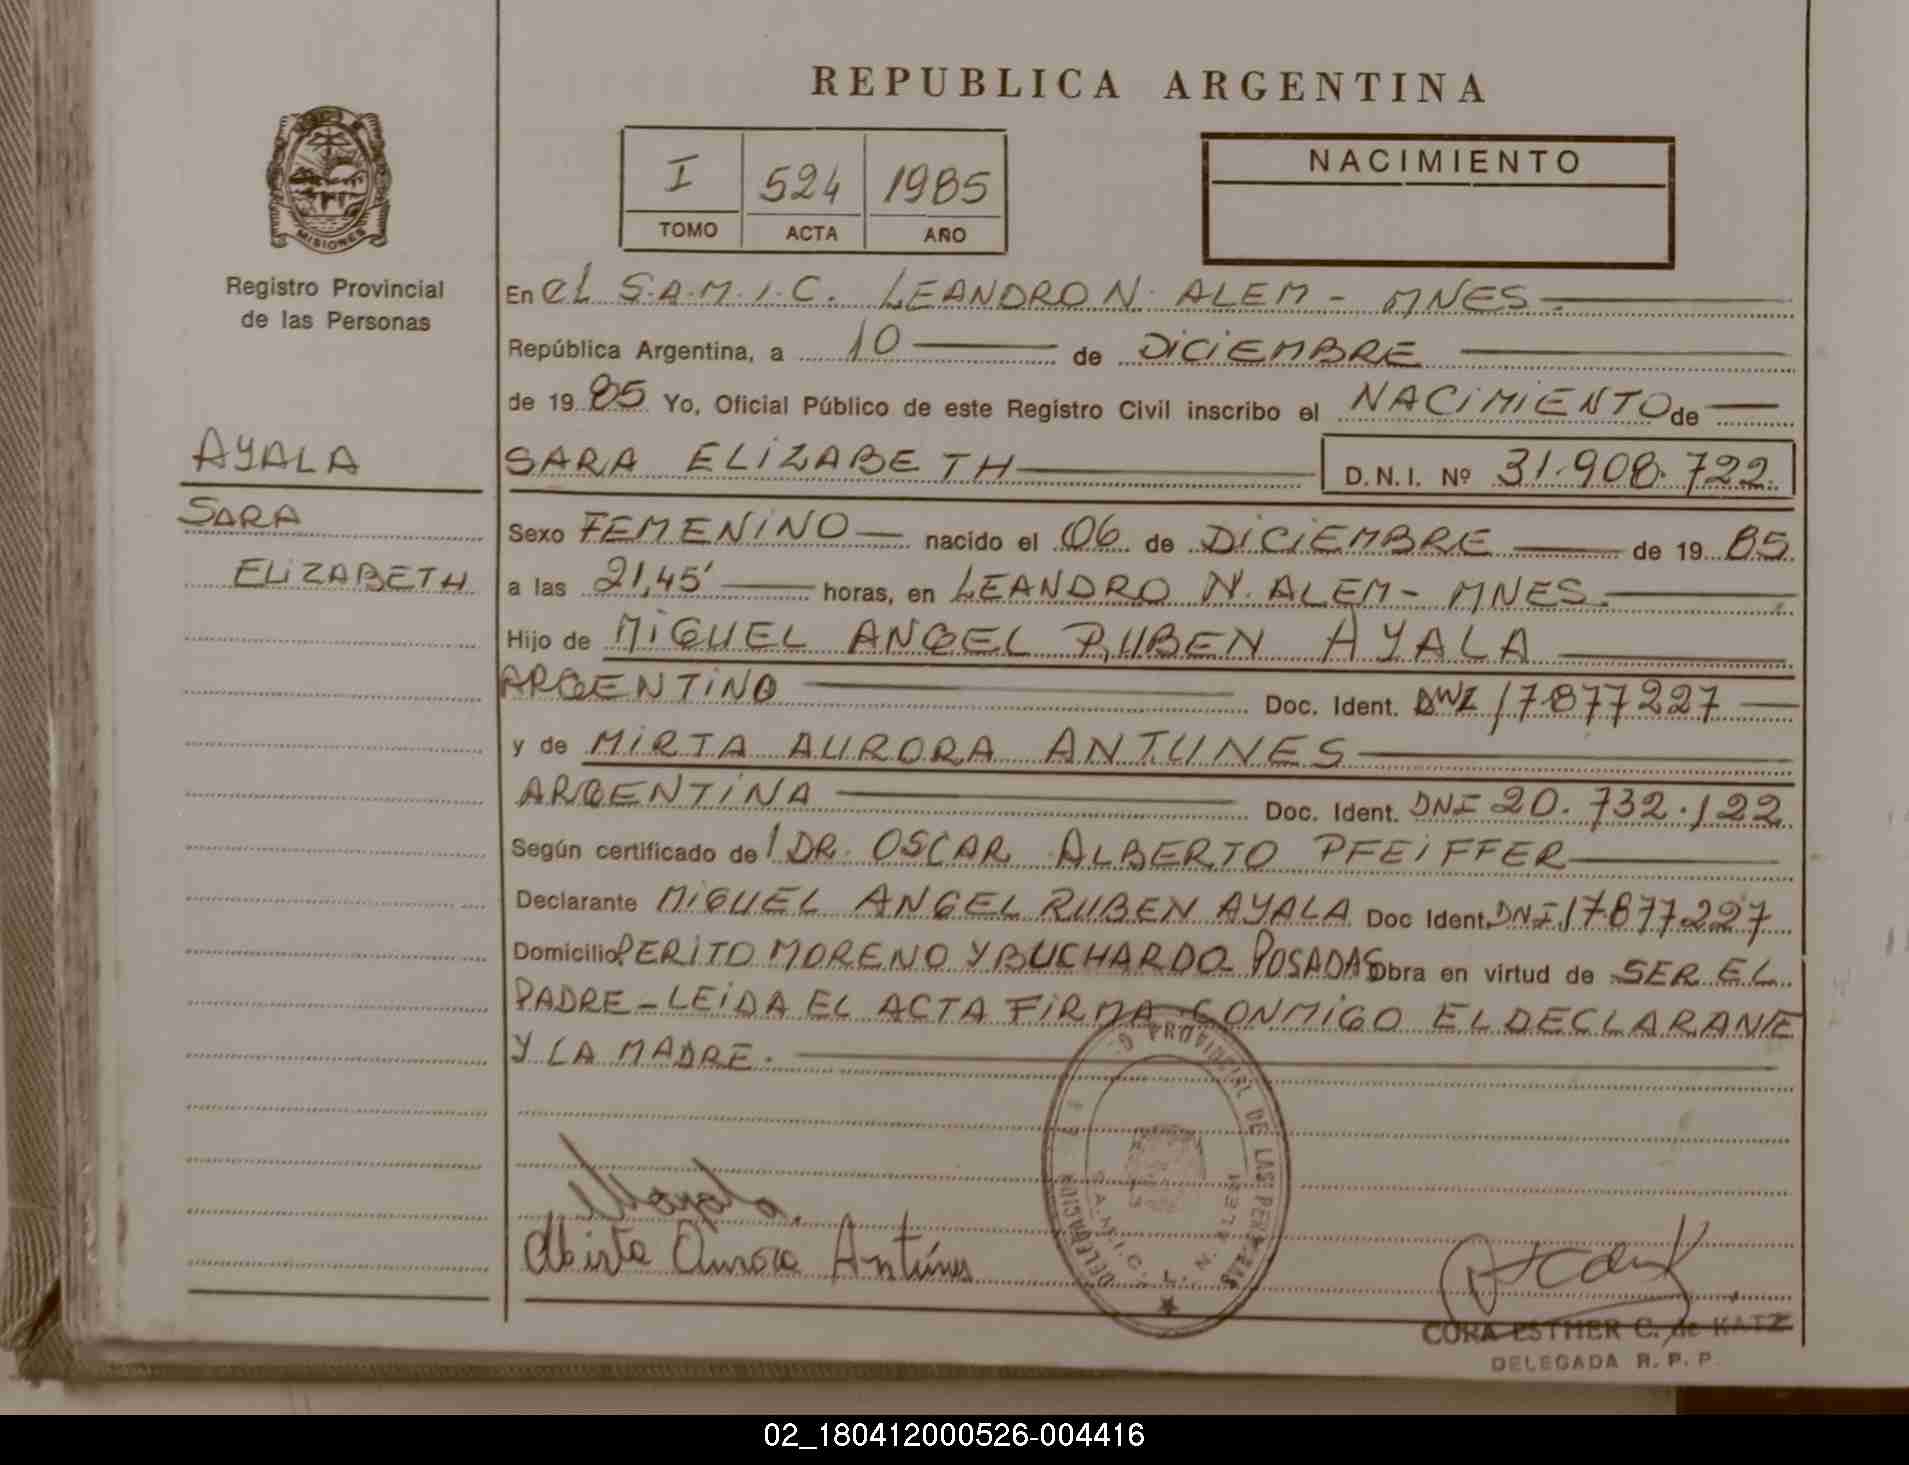 REPUBLICA ARGENTINA
I 524 1985
TOMO ACTA AÑO
NACIMIENTO
MISIONES
Registro Provincial
de las Personas
AYALA
SARA
ELIZABETH
En el S.A.M.I.C. LEANDRO N. ALEM - MNES.
República Argentina, a 10 de DICIEMBRE
de 19 85 Yo, Oficial Público de este Registro Civil inscribo el NACIMIENTO de
SARA ELIZABETH D.N.I. Nº 31.908.722.
Sexo FEMENINO nacido el 06 de DICIEMBRE de 19 85
a las 21,45' horas, en LEANDRO N. ALEM - MNES.
Hijo de MIGUEL ANGEL RUBEN AYALA
ARGENTINO Doc. Ident. 17877227
y de MIRTA AURORA ANTUNES
ARGENTINA Doc. Ident. DNI 20.732.122
Según certificado de DR. OSCAR ALBERTO PFEIFFER
Declarante MIGUEL ANGEL RUBEN AYALA Doc Ident. DNI 17877227
Domicilio PERITO MORENO Y BUCHARDO POSADAS Obra en virtud de SER EL
PADRE - LEIDA EL ACTA FIRMA CONMIGO EL DECLARANTE
Y LA MADRE.
PROVINCIAL DE LAS PERSONAS
DELEGACION
S.A.M.I.C. L. N. ALEM
Mirta Aurora Antúnes
CORA ESTHER C. de KATZ
DELEGADA R. P. P.
02_180412000526-004416